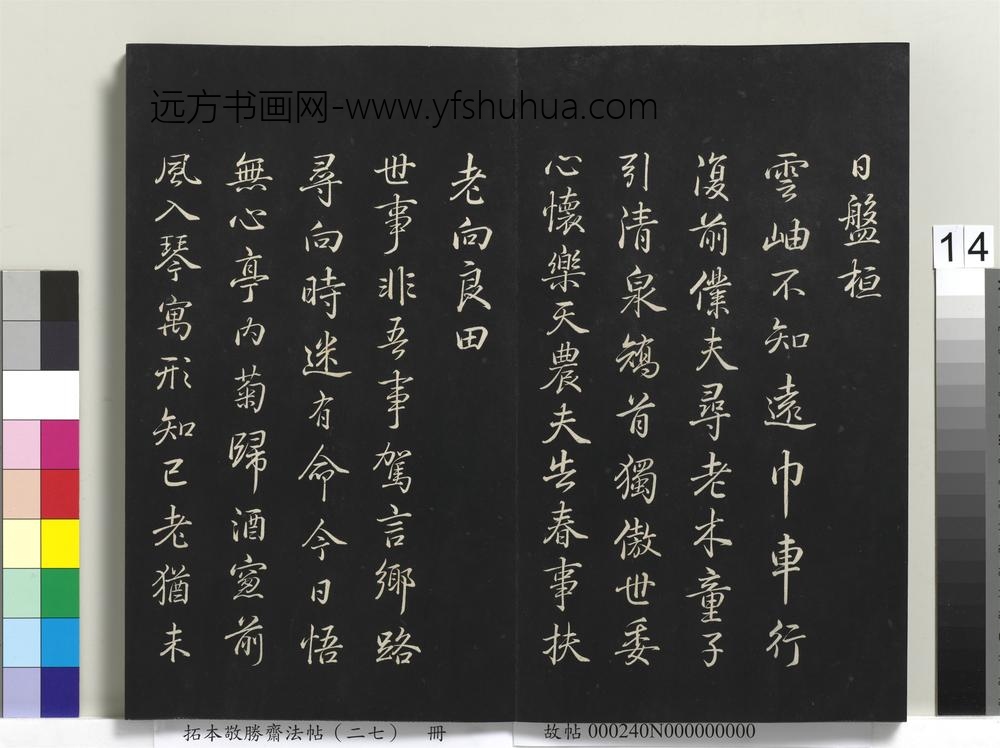 远方书画网-www.yfshuhua.com
日盤桓
雲岫不知遠巾車行
復前僕夫尋老木童子
引清泉矯首獨傲世委
心懷樂天農夫告春事扶
老向良田
世事非吾事駕言鄉路
尋向時迷有命今日悟
無心亭內菊歸酒窓前
風入琴寓形知已老猶未
14
拓本敬勝齋法帖（二七） 冊
故帖 000240N000000000